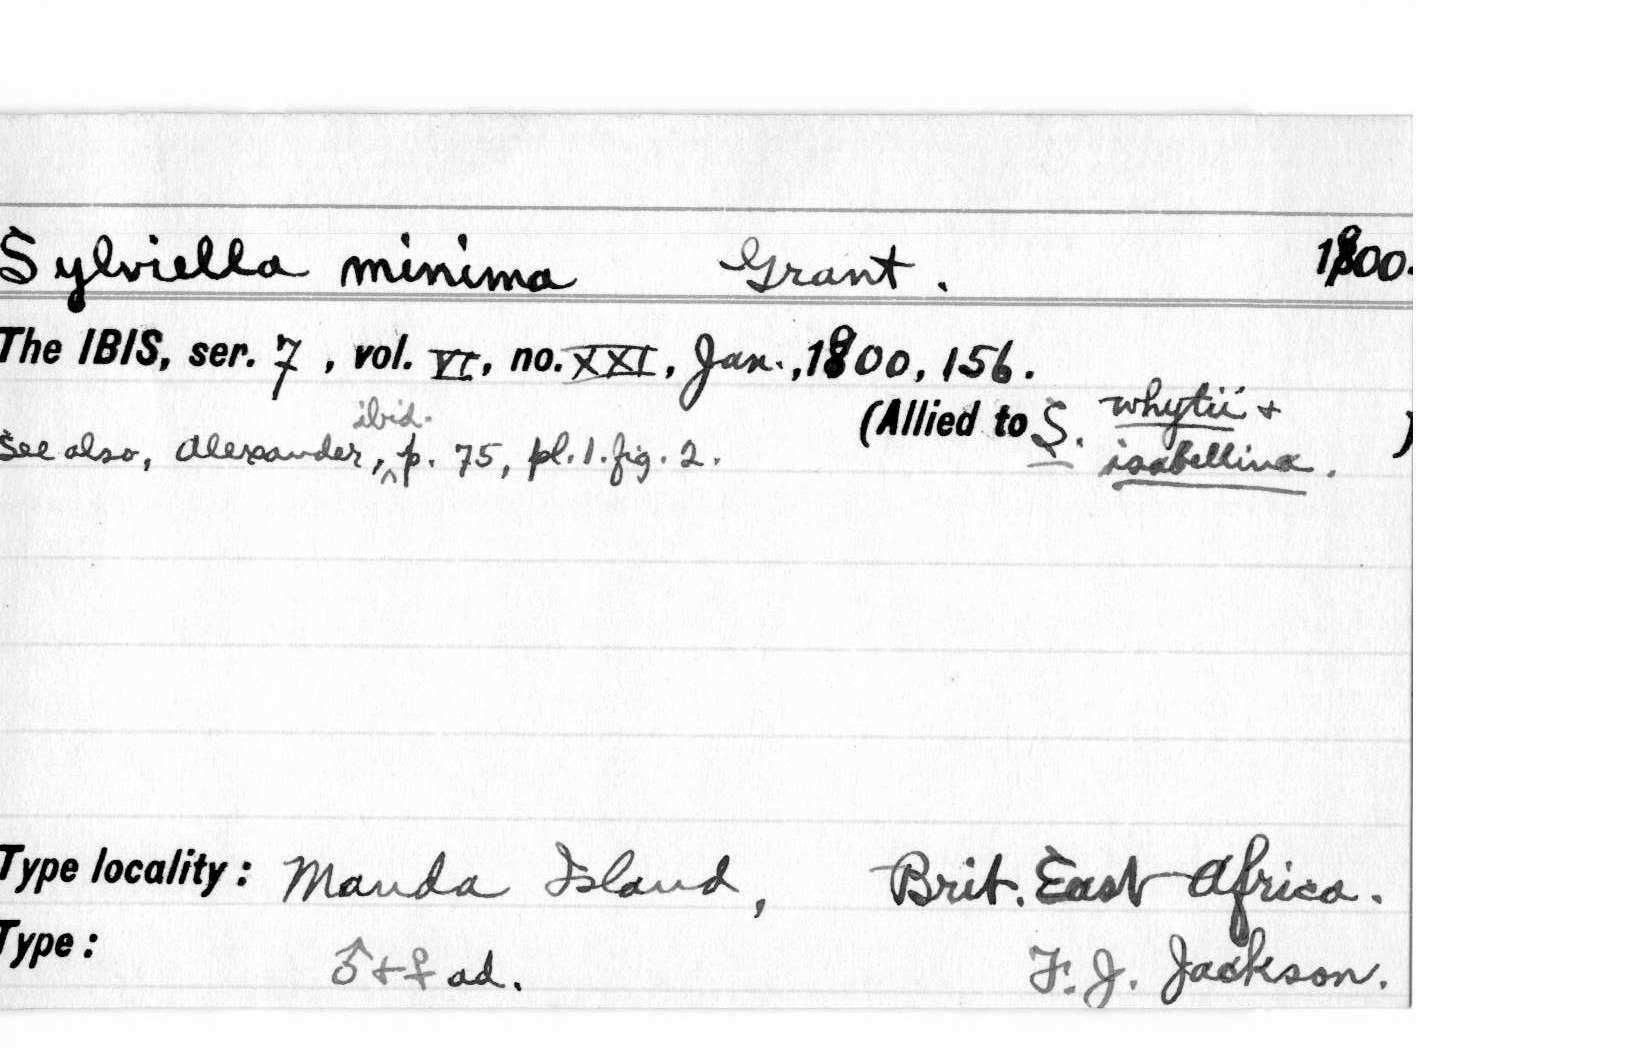 Sylviella minima Grant. 1900.
The IBIS, ser. 7, vol. VI, no. XXI, Jan., 1900, 156.
(Allied to S. whytii + isabellina.)
See also, Alexander, ibid. p. 75, pl. 1. fig. 2.
Type locality: Manda Island, Brit. East Africa.
Type: ♂ + ♀ ad. F. J. Jackson.